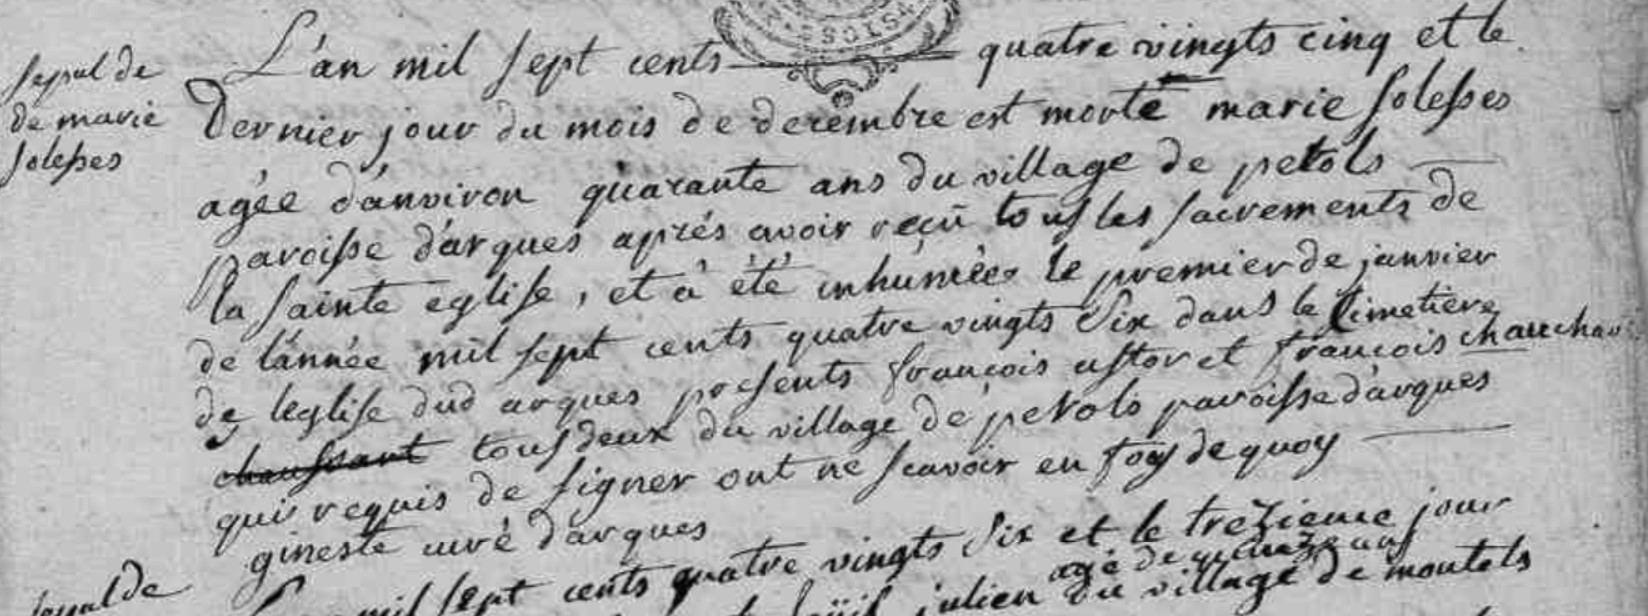 sepul de
de marie
solesses
L'an mil sept cents quatre vingts cinq et le
Dernier jour du mois de decembre est morte marie solesses
agée d'anviron quarante ans du village de petols
paroisse d'arques aprés avoir reçu tous les sacrements de
la sainte eglise, et à été inhumée le premier de janvier
de l'année mil sept cents quatre vingts six dans le cimetiere
de leglise dud arques presents françois astor et françois
tous deux du village de petols paroisse d'arques
qui requis de signer ont ne scavoir en foy de quoy
gineste curé d'arques
sepul de
mil sept cents quatre vingts six et le trezieme jour
agé de quinze ans
julien du village de montels